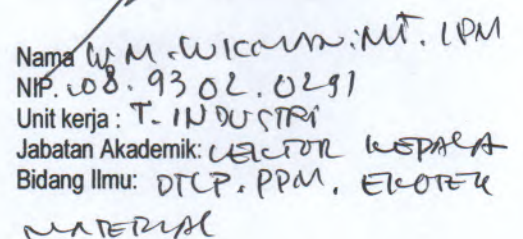 Nama W.M. Wicaksono, MT. IPM
NIP. 08.9302.0291
Unit kerja : T. INDUSTRI
Jabatan Akademik: LEKTOR KEPALA
Bidang Ilmu: DTLP. PPM, EKOTEK
MATERIAL